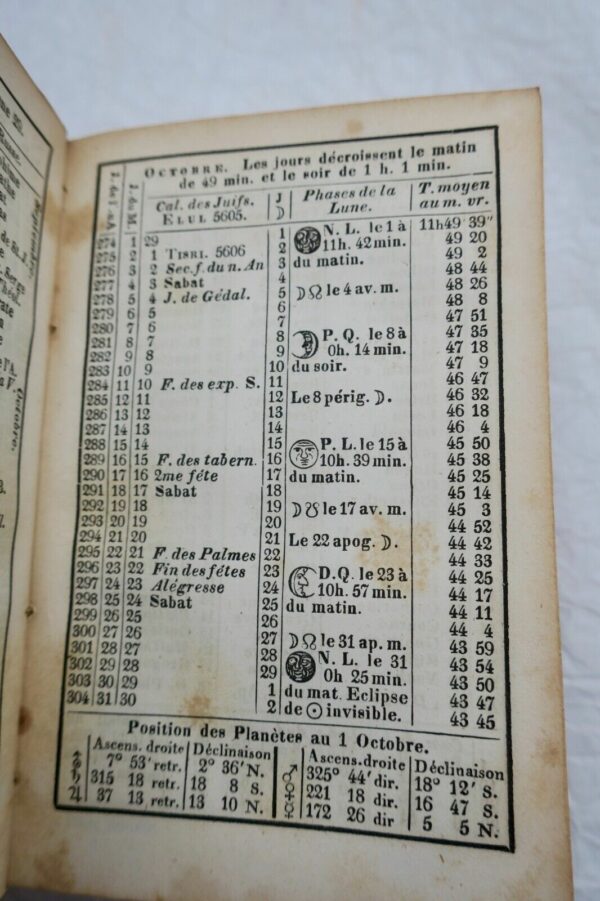 Septembre.
Octobre.
OCTOBRE. Les jours décroissent le matin
de 49 min. et le soir de 1 h. 1 min.
J. du M. Cal. des Juifs. ELUL 5605. J ☽ Phases de la Lune. T. moyen au m. vr.
274 1 29 1 N. L. le 1 à 11h49' 39"
275 2 1 TISRI. 5606 2 11h. 42min. 49 20
276 3 2 Sec.f.du n. An 3 du matin. 49 2
277 4 3 Sabat 4 48 44
278 5 4 J. de Gédal. 5 ☽☊ le 4 av. m. 48 26
279 6 5 6 48 8
280 7 6 7 47 51
281 8 7 8 P. Q. le 8 à 47 35
282 9 8 9 0h. 14min. 47 18
283 10 9 10 du soir. 47 9
284 11 10 F. des exp. S. 11 46 47
285 12 11 12 Le 8 périg. ☽. 46 32
286 13 12 13 46 18
287 14 13 14 46 4
288 15 14 15 P. L. le 15 à 45 50
289 16 15 F. des tabern. 16 10h. 39min. 45 38
290 17 16 2me féte 17 du matin. 45 25
291 18 17 Sabat 18 45 14
292 19 18 19 ☽☋ le 17 av. m. 45 3
293 20 19 20 44 52
294 21 20 21 Le 22 apog. ☽. 44 42
295 22 21 F. des Palmes 22 44 33
296 23 22 Fin des fétes 23 D.Q. le 23 à 44 25
297 24 23 Alégresse 24 10h. 57min. 44 17
298 25 24 Sabat 25 du matin. 44 11
299 26 25 26 44 4
300 27 26 27 ☽☊ le 31 ap. m. 43 59
301 28 27 28 N. L. le 31 43 54
302 29 28 29 0h 25min. 43 50
303 30 29 1 du mat. Eclipse 43 47
304 31 30 2 de ☉ invisible. 43 45
Position des Planètes au 1 Octobre.
Ascens. droite Déclinaison Ascens. droite Déclinaison
7° 53' retr. 2° 36' N. ♂ 325° 44' dir. 18° 12' S.
♄ 315 18 retr. 18 8 S. ♀ 221 18 dir. 16 47 S.
♃ 37 13 retr. 13 10 N. ☿ 172 26 dir 5 5 N.